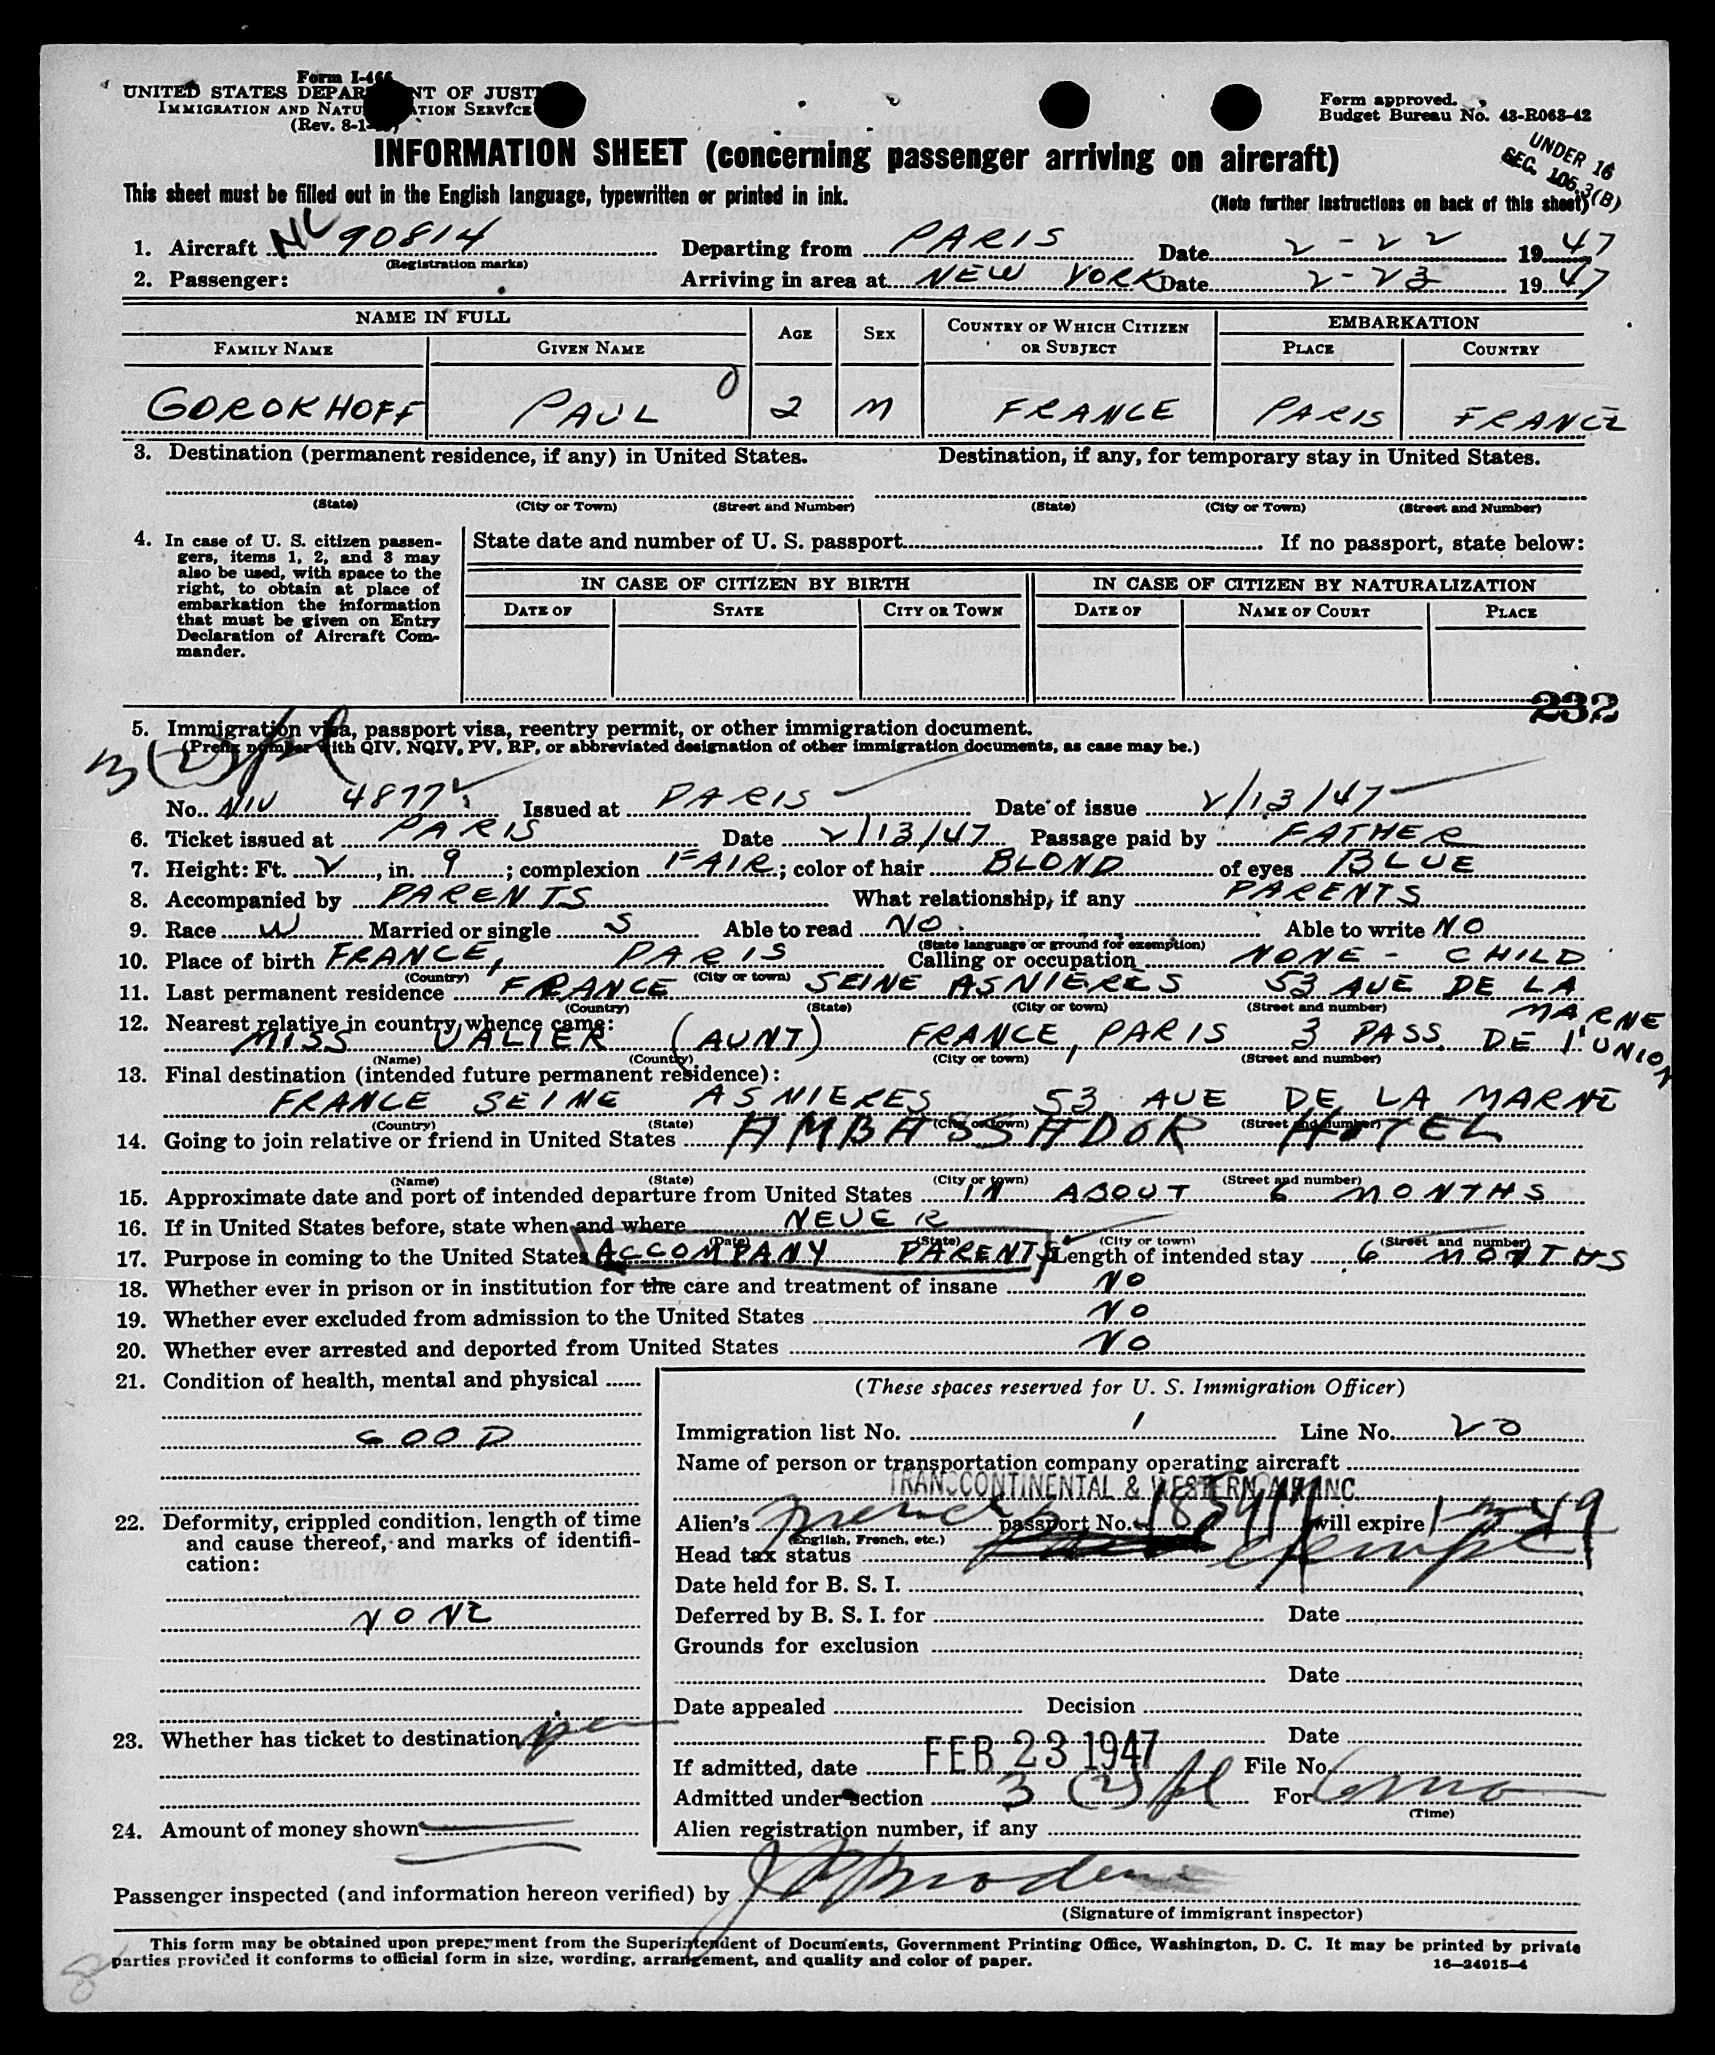 Form I-466
UNITED STATES DEPARTMENT OF JUSTICE
IMMIGRATION AND NATURALIZATION SERVICE
(Rev. 8-1-
Form approved.
Budget Bureau No. 43-R063-42
INFORMATION SHEET (concerning passenger arriving on aircraft)
UNDER 16
SEC. 106.3(B)
This sheet must be filled out in the English language, typewritten or printed in ink.
(Note further instructions on back of this sheet)
1. Aircraft NC 90814 Departing from PARIS Date 2-22 1947
(Registration marks)
2. Passenger: Arriving in area at NEW YORK Date 2-23 1947
NAME IN FULL AGE SEX COUNTRY OF WHICH CITIZEN OR SUBJECT EMBARKATION
FAMILY NAME GIVEN NAME PLACE COUNTRY
GOROKHOFF PAUL 2 M FRANCE PARIS FRANCE
3. Destination (permanent residence, if any) in United States. Destination, if any, for temporary stay in United States.
(State) (City or Town) (Street and Number) (State) (City or Town) (Street and Number)
4. In case of U. S. citizen passen-
gers, items 1, 2, and 3 may
also be used, with space to the
right, to obtain at place of
embarkation the information
that must be given on Entry
Declaration of Aircraft Com-
mander.
State date and number of U. S. passport If no passport, state below:
IN CASE OF CITIZEN BY BIRTH IN CASE OF CITIZEN BY NATURALIZATION
DATE OF STATE CITY OR TOWN DATE OF NAME OF COURT PLACE
232
5. Immigration visa, passport visa, reentry permit, or other immigration document.
(Prefix number with QIV, NQIV, PV, RP, or abbreviated designation of other immigration documents, as case may be.)
3(2)
No. NIV 48772 Issued at PARIS Date of issue 2/13/47
6. Ticket issued at PARIS Date 2/13/47 Passage paid by FATHER
7. Height: Ft. 2, in. 9; complexion FAIR; color of hair BLOND of eyes BLUE
8. Accompanied by PARENTS What relationship, if any PARENTS
9. Race W Married or single S Able to read NO Able to write NO
(State language or ground for exemption)
10. Place of birth FRANCE, PARIS Calling or occupation NONE - CHILD
(Country) (City or town)
11. Last permanent residence FRANCE SEINE ASNIERES 53 AUE DE LA MARNE
(Country) (State) (City or town) (Street and number)
12. Nearest relative in country whence came:
MISS VALIER (AUNT) FRANCE, PARIS 3 PASS. DE L'UNION
(Name) (Country) (City or town) (Street and number)
13. Final destination (intended future permanent residence):
FRANCE SEINE ASNIERES 53 AUE DE LA MARNE
(Country) (State) (City or town) (Street and number)
14. Going to join relative or friend in United States AMBASSADOR HOTEL
(Name) (State) (City or town) (Street and number)
15. Approximate date and port of intended departure from United States IN ABOUT 6 MONTHS
16. If in United States before, state when and where NEVER
(Date) (State) (City or town) (Street and number)
17. Purpose in coming to the United States ACCOMPANY PARENTS Length of intended stay 6 MONTHS
18. Whether ever in prison or in institution for the care and treatment of insane NO
19. Whether ever excluded from admission to the United States NO
20. Whether ever arrested and deported from United States NO
21. Condition of health, mental and physical
GOOD
22. Deformity, crippled condition, length of time
and cause thereof, and marks of identifi-
cation:
NONE
23. Whether has ticket to destination
24. Amount of money shown
(These spaces reserved for U. S. Immigration Officer)
Immigration list No. 1 Line No. 20
Name of person or transportation company operating aircraft
TRANSCONTINENTAL & WESTERN AIR INC.
Alien's French passport No. will expire
(English, French, etc.)
Head tax status exempt
Date held for B. S. I.
Deferred by B. S. I. for Date
Grounds for exclusion
Date
Date appealed Decision
Date
If admitted, date FEB 23 1947 File No.
Admitted under section 3 (2) For 6 mo
(Time)
Alien registration number, if any
Passenger inspected (and information hereon verified) by
(Signature of immigrant inspector)
This form may be obtained upon prepayment from the Superintendent of Documents, Government Printing Office, Washington, D. C. It may be printed by private
parties provided it conforms to official form in size, wording, arrangement, and quality and color of paper.
16-24915-4
8